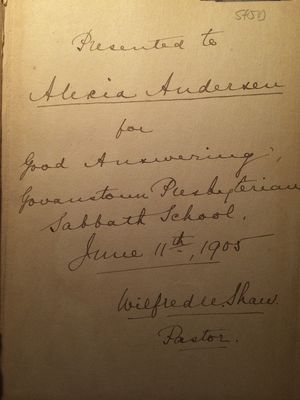 Presented to
Alexia Andersen
for
Good Answering,
Govanstown Presbyterian
Sabbath School.
June 11th, 1905
Wilfred W. Shaw
Pastor.